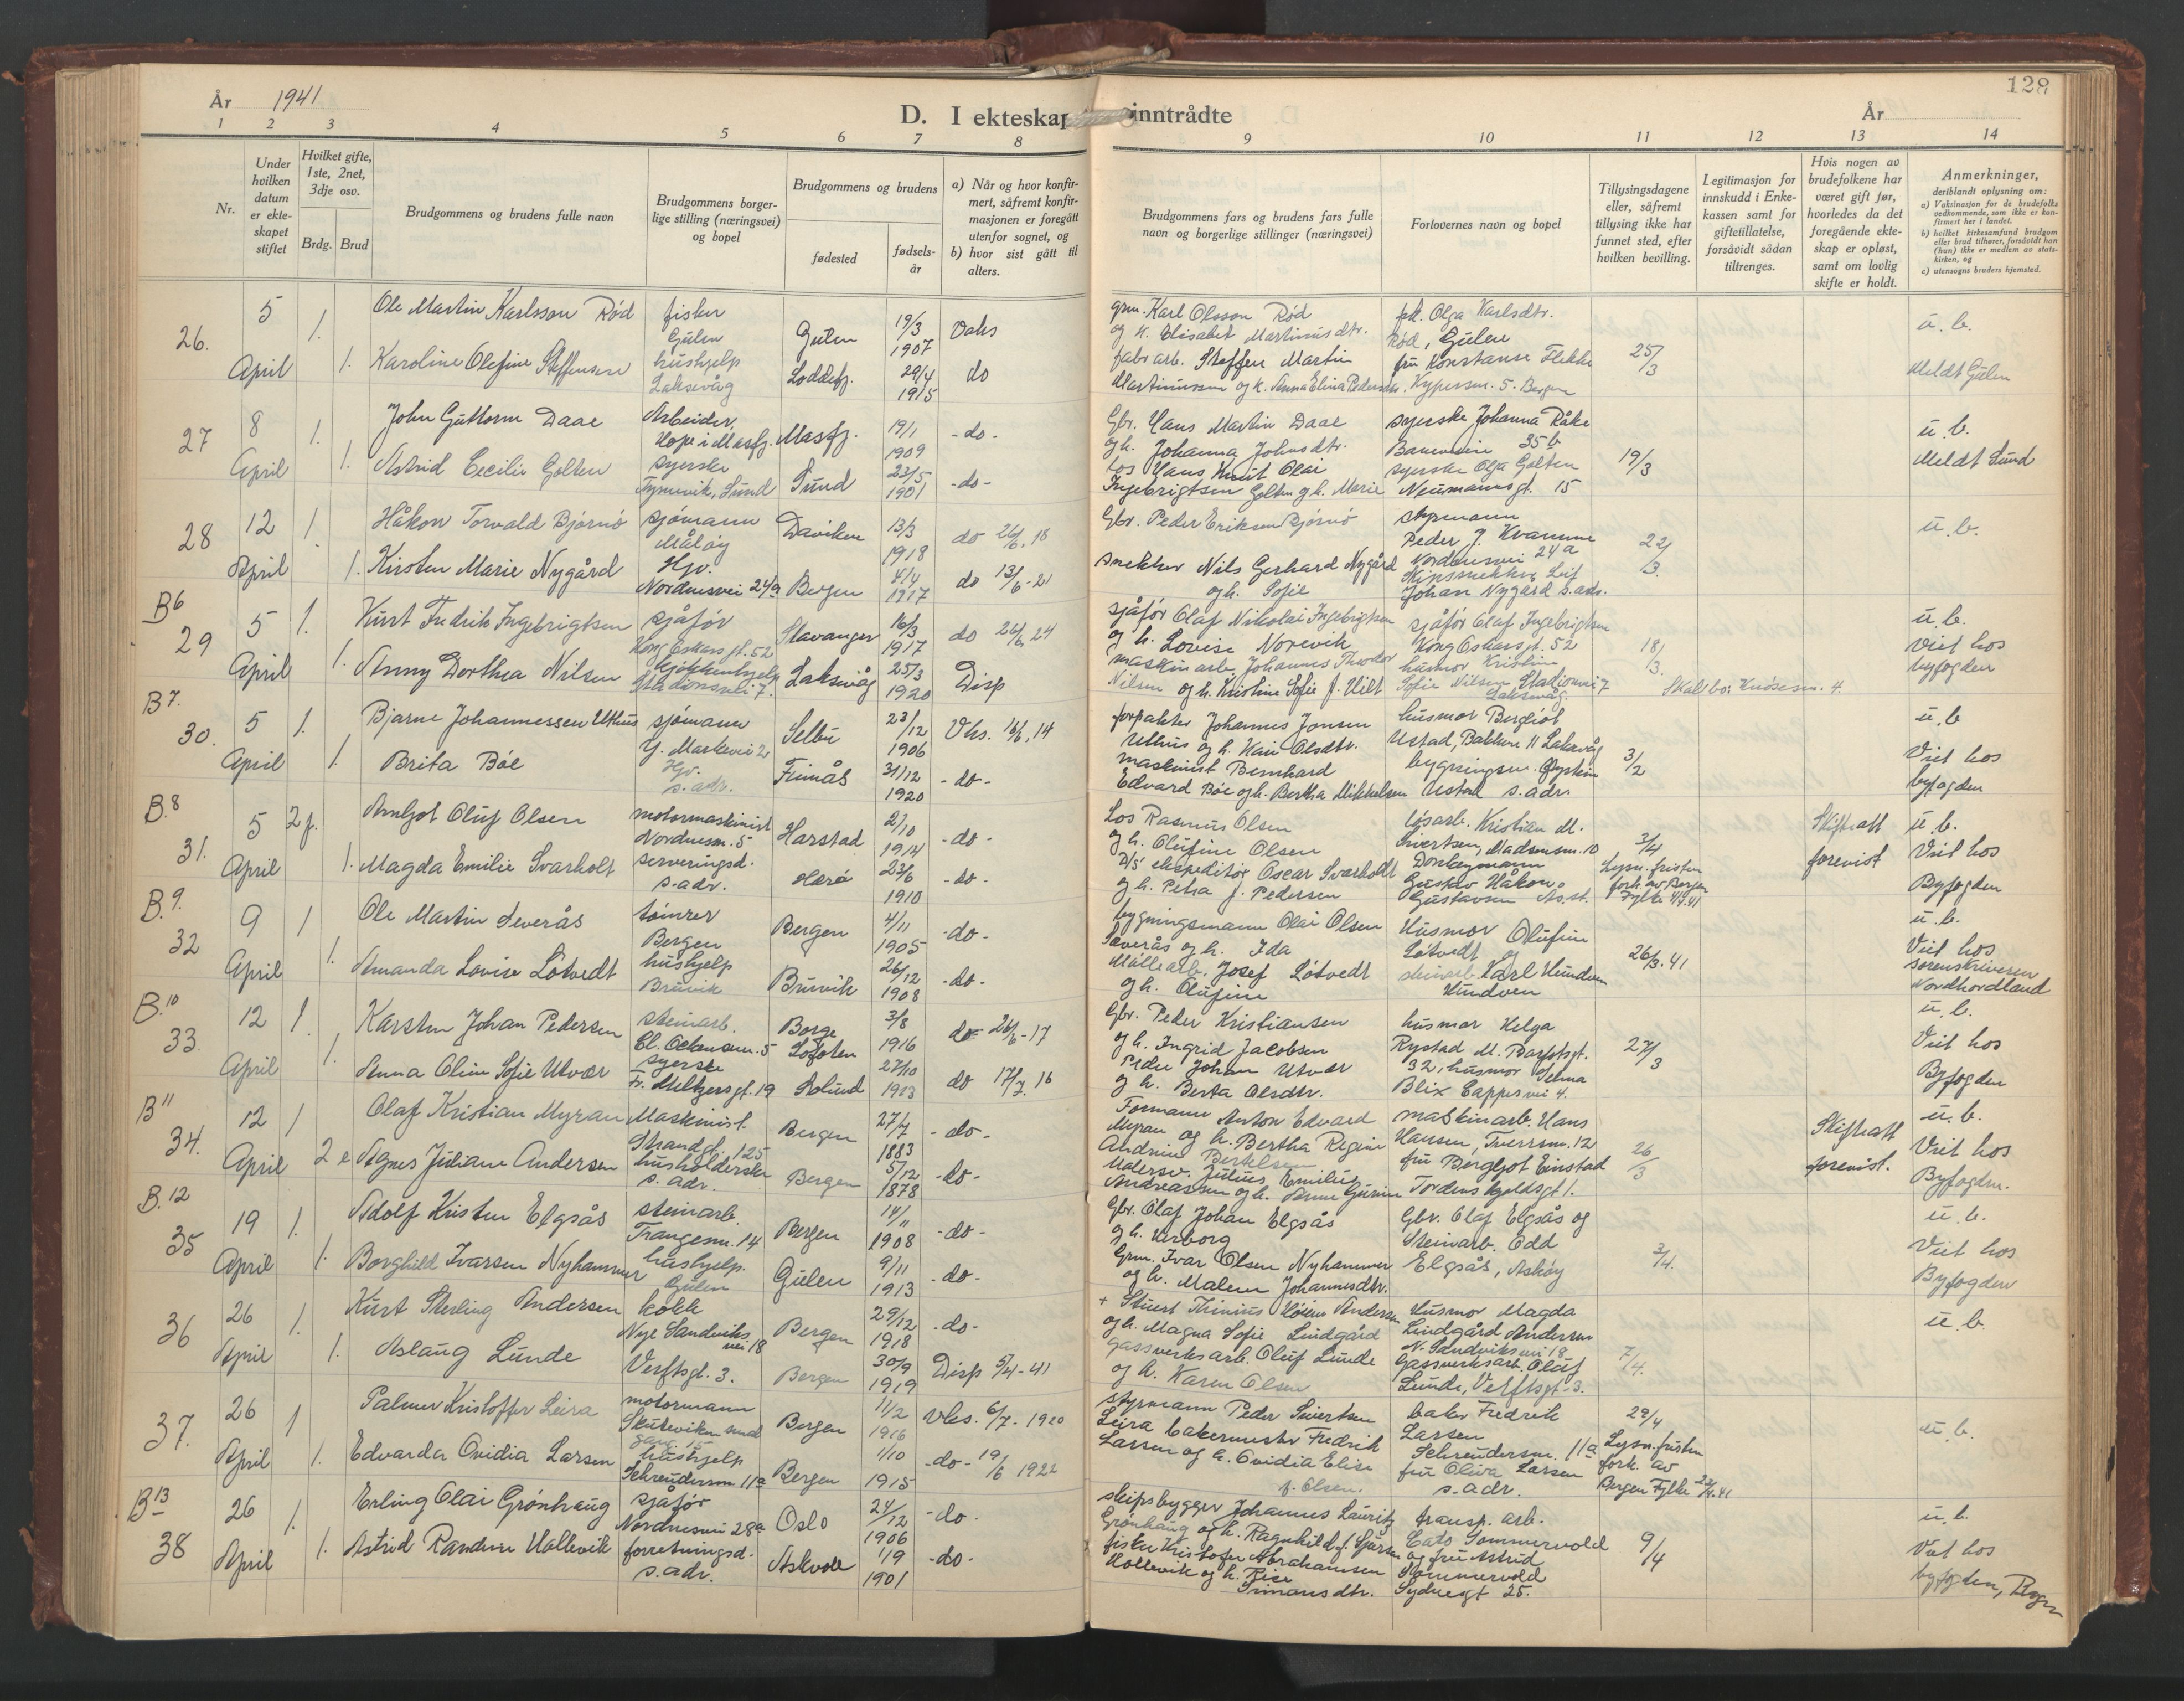 År 1941
D. I ekteskap inntrådte
År
128
1 2 3 4 5 6 7 8 9 10 11 12 13 14
Nr.
Under hvilken datum er ekteskapet stiftet
Hvilket gifte, 1ste, 2net, 3dje osv.
Brdg. Brud
Brudgommens og brudens fulle navn
Brudgommens borgerlige stilling (næringsvei) og bopel
Brudgommens og brudens
fødested
fødselsår
a) Når og hvor konfirmert, såfremt konfirmasjonen er foregått utenfor sognet, og
b) hvor sist gått til alters.
Brudgommens fars og brudens fars fulle navn og borgerlige stillinger (næringsvei)
Forlovernes navn og bopel
Tillysingsdagene eller, såfremt tillysing ikke har funnet sted, efter hvilken bevilling.
Legitimasjon for innskudd i Enkekassen samt for giftetillatelse, forsåvidt sådan tiltrenges.
Hvis nogen av brudefolkene har været gift før, hvorledes da det foregående ekteskap er opløst, samt om lovlig skifte er holdt.
Anmerkninger, deriblandt oplysning om:
a) Vaksinasjon for de brudefolks vedkommende, som ikke er konfirmert her i landet.
b) hvilket kirkesamfund brudgom eller brud tilhører, forsåvidt han (hun) ikke er medlem av statskirken, og
c) utensogns bruders hjemsted.
26. 5 April 1. Ole Martin Karlsson Rød fisker Gulen Gulen 19/3 1907 Vaks
1. Karoline Olefine Steffensen hushjelp Laksevåg Loddefj. 29/4 1915 do
grm. Karl Olsson Rød og h. Elisabet Martinusdtr.
fabr.arb. Steffen Martin Martinussen og h. Anna Elina Pedersdtr.
frk. Olga Karlsdtr. Rød, Gulen
fru Konstanse Flekke, Bergen
25/3
u.b. Meldt Gulen
27 8 April 1. John Guttorm Daae Arbeider, Hope i Masfj. Masfj. 19/1 1909 -do-
1. Astrid Cecilie Golten syerske Sund Sund 23/5 1901 -do-
Gbr. Hans Martin Daae og h. Johanna Johnsdtr.
Los Hans Knut Olai Ingebrigtsen Golten og h. Marie
syerske Johanna Råke 35 b
syerske Olga Golten Neumannsgt. 15
19/3
u.b. Meldt Sund
28 12 April 1. Håkon Torvald Bjørnø sjømann Måløy Daviken 13/3 1918 do 26/6.18
1. Kirsten Marie Nygård Hjv. Nordnesvei 24a Bergen 4/4 1917 do 13/6-21
Gbr. Peder Eriksen Bjørnø
snekker Nils Gerhard Nygård og h. Sofie
Peder J. Kvamme Nordnesvei 24a
Skipssnekker Leif Johan Nygård s.adr.
22/3.
u.b.
B6
29 5 April 1. Kurt Fredrik Ingebrigtsen sjåfør Kong Oskars gt. 52 Stavanger 16/3 1917 do 26/6.24
1. Anny Dorthea Nilsen kjøkkenhjelp Stadionvei 7. Laksevåg 25/3 1920 Disp
sjåfør Olaf Nikolai Ingebrigtsen og h. Lovise Norevik
maskinarb. Johannes Theodor Nilsen og h. Kristine Sofie f. Vilt
sjåfør Olaf Ingebrigtsen Kong Oskarsgt. 52
husmor Kristine Sofie Nilsen Stadionvei 7 Laksevåg
18/3.
Skal bo: Knøsesm. 4.
u.b. Viet hos byfogden
B7.
30. 5 April 1. Bjarne Johannessen Uthus sjømann Y. Markevei 2 Selbu 23/12 1906 Vks. 16/6.14
1. Brita Bøe Hjv. s.adr. Fimås 31/12 1920 -do-
forpakter Johannes Jonsen Uthus og h. Kari Olsdtr.
maskinist Bernhard Edvard Bøe og h. Bertha Mikkelsen
husmor Bergliot Ustad, Bakken 11 Laksevåg
bygningsm. Øystein Ustad s.adr.
3/2
u.b Viet hos byfogden
B.8
31. 5 April 2 f. Arnljot Oluf Olsen motormaskinist Nordnesm. 5 Harstad 2/10 1914 -do-
1. Magda Emilie Svarholt serveringsd. s.adr. Herø 23/6 1910 -do-
Los Rasmus Olsen og h. Olufine Olsen
D/S ekspeditør Oscar Svarholt og h. Petra f. Pedersen
løsarb. Kristian M. Sivertsen, Madsensm. 10
Donkeymann Gustav Håkon Gustavsen Ås.st.
3/4 Lysn.fristen fork. av Bergen Fylke 4/4.41
Skifteatt forevist
u.b. Viet hos Byfogden
B.9.
32 9 April 1 Ole Martin Severås tømrer Bergen Bergen 4/11 1905 -do-
1. Amanda Lovise Løtvedt hushjelp Bruvik Bruvik 26/12 1908 -do-
bygningsmann Olai Olsen Sæverås og h. Ida
Møllearb. Josef Løtvedt og h. Olufine
Husmor Olufine Løtvedt og
steinarb. Karl Hundven Hundven
26/3.41
u.b. Viet hos sorenskriveren Nordhordland
B.10
33. 12 April 1. Karsten Johan Pedersen steinarb. Cl. Ockensm. 5 Borge Lofoten 3/8 1916 do 26/6-17
1. Anna Oline Sofie Utvær syerske Fr. Meltzersgt. 19 Solund 27/10 1913 do 17/7.16
Gbr. Peder Kristiansen og h. Ingrid Jacobsen
Peder Johan Utvær og h. Berta Olsdtr.
husmor Helga Rystad M. Barfotsgt. 32, husmor Selma Blix Cappesvei 4.
27/3
u.b. Viet hos Byfogden
B11
34. 12 April 1 Olaf Kristian Myran Maskinist. Strandgt. 125 Bergen 27/7 1883 -do-
2 e Agnes Juliane Andersen husholderske s.adr. Bergen 5/12 1878 -do-
Formann Anton Edvard Myran og h. Bertha Regine Andrine Bertelsen
Malersv. Julius Emilius Andreassen og h. Anne Gurine
maskinarb. Hans Hansen, Tverrsm. 12
fru Bergljot Einstad Tordenskjoldsgt 1.
26/3
Skifteatt forevist.
u.b. Viet hos Byfogden.
B.12
35 19 April 1. Adolf Kristen Elgsås steinarb. Trangesm. 14 Bergen 14/11 1908 -do-
1. Borghild Ivarsen Nyhammer hushjelp. Gulen Gulen 9/11 1913 -do-
Gbr. Olaf Johan Elgsås og h. Herborg
Grm. Ivar Olsen Nyhammer og h. Malene Johannesdtr.
Gbr. Olaf Elgsås og Steinarb. Odd Elgsås, Askøy
3/4.
u.b. Viet hos Byfogden
36 26 April 1. Kurt Sterling Andersen kokk Nye Sandviksvei 18 Bergen 29/12 1918 -do-
1. Aslaug Lunde Verftsgt. 3. Bergen 30/9 1919 Disp 5/4-41
+ Stuert Thinius Høiem Andersen og h. Magna Sofie Lindgård
gassverksarb. Oluf Lunde og h. Karen Olsen
Husmor Magda Lindgård Andersen N. Sandviksvei 18
Gassverksarb. Oluf Lunde, Verftsgt. 3.
7/4.
u.b.
37. 26 April 1 Palmer Kristoffer Leira motormann Skuteviken Bergen 11/2 1916 Vks. 6/7-1920
1. Edvarda Ovidia Larsen hushjelp Schreudersm. 11a Bergen 1/10 1915 -do- 19/6 1922
styrmann Peder Sivertsen Leira
bakermester Fredrik Larsen og h. Ovidia Elise f. Olsen.
baker Fredrik Larsen Schreudersm. 11a
fru Oliva Larsen s.adr.
29/4 Lysn.fristen fork. av Bergen Fylke 22/4.41
u.b.
B13
38 26 April 1. Erling Olai Grønhaug sjåfør Nordnesvei 28a Oslo 24/12 1906 -do-
1. Astrid Randine Hallevik forretningsd. s.adr. Askvoll 1/9 1901 -do-
skipsbygger Johannes Lauritz Grønhaug og h. Ragnhild f. Sjursen
fisker Kristofer Abrahamsen Hollevik og h. Rise Simonsdtr.
transp. arb. Cato Sommervold og fru Astrid Sommervold Sydnesgt 25.
9/4
u.b. Viet hos byfogden, Bergen